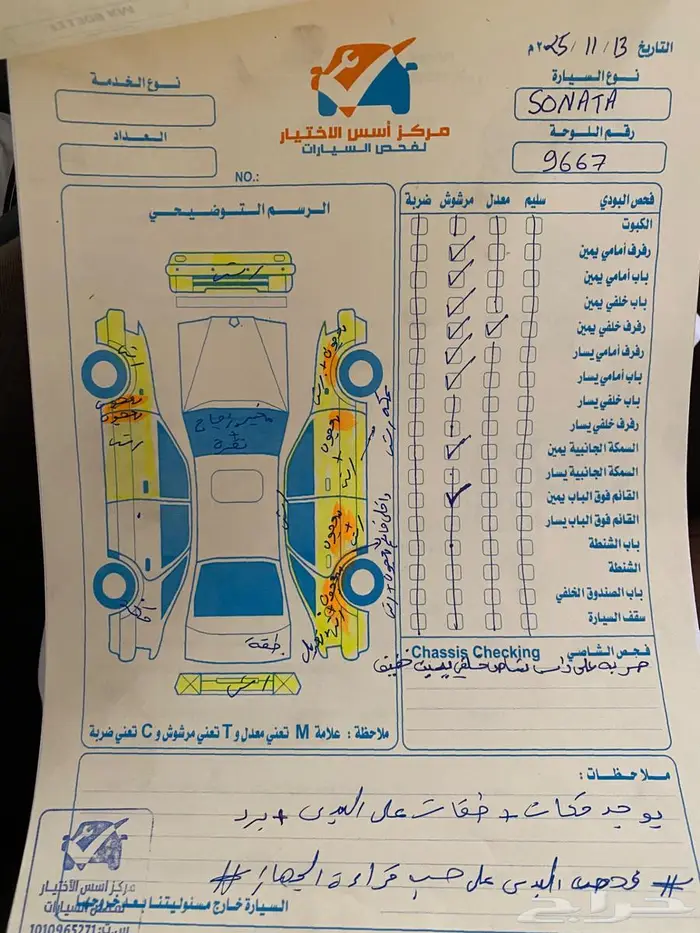 التاريخ 13 / 11 / ٢٠25م
نوع السيارة
SONATA
رقم اللوحة
9667
مركز أسس الاختيار
لفحص السيارات
نوع الخدمة
العداد
NO.:
فحص البودي سليم معدل مرشوش ضربة
الكبوت
رفرف أمامي يمين
باب أمامي يمين
باب خلفي يمين
رفرف خلفي يمين
رفرف أمامي يسار
باب أمامي يسار
باب خلفي يسار
رفرف خلفي يسار
السمكة الجانبية يمين
السمكة الجانبية يسار
القائم فوق الباب يمين
القائم فوق الباب يسار
باب الشنطة
الشنطة
باب الصندوق الخلفي
سقف السيارة
الرسم التوضيحي
رش
رش
معجون + رش
معجون
معجون
رش
تغيير زجاج
+
نقرة
معجون + رش
رش
معجون + رش
طقة
رش
ملاحظة : علامة M تعني معدل و T تعني مرشوش و C تعني ضربة
فحص الشاصي Chassis Checking
ضربه على راس شاصا خلفي يمين خفيف
ملاحظات :
يوجد حكات + طقات على البدي + برد
# فحص البدي على حسب قراءة الجهاز #
السيارة خارج مسئوليتنا بعد خروجها
مركز أسس الاختيار
لفحص السيارات
1010965271
حراج